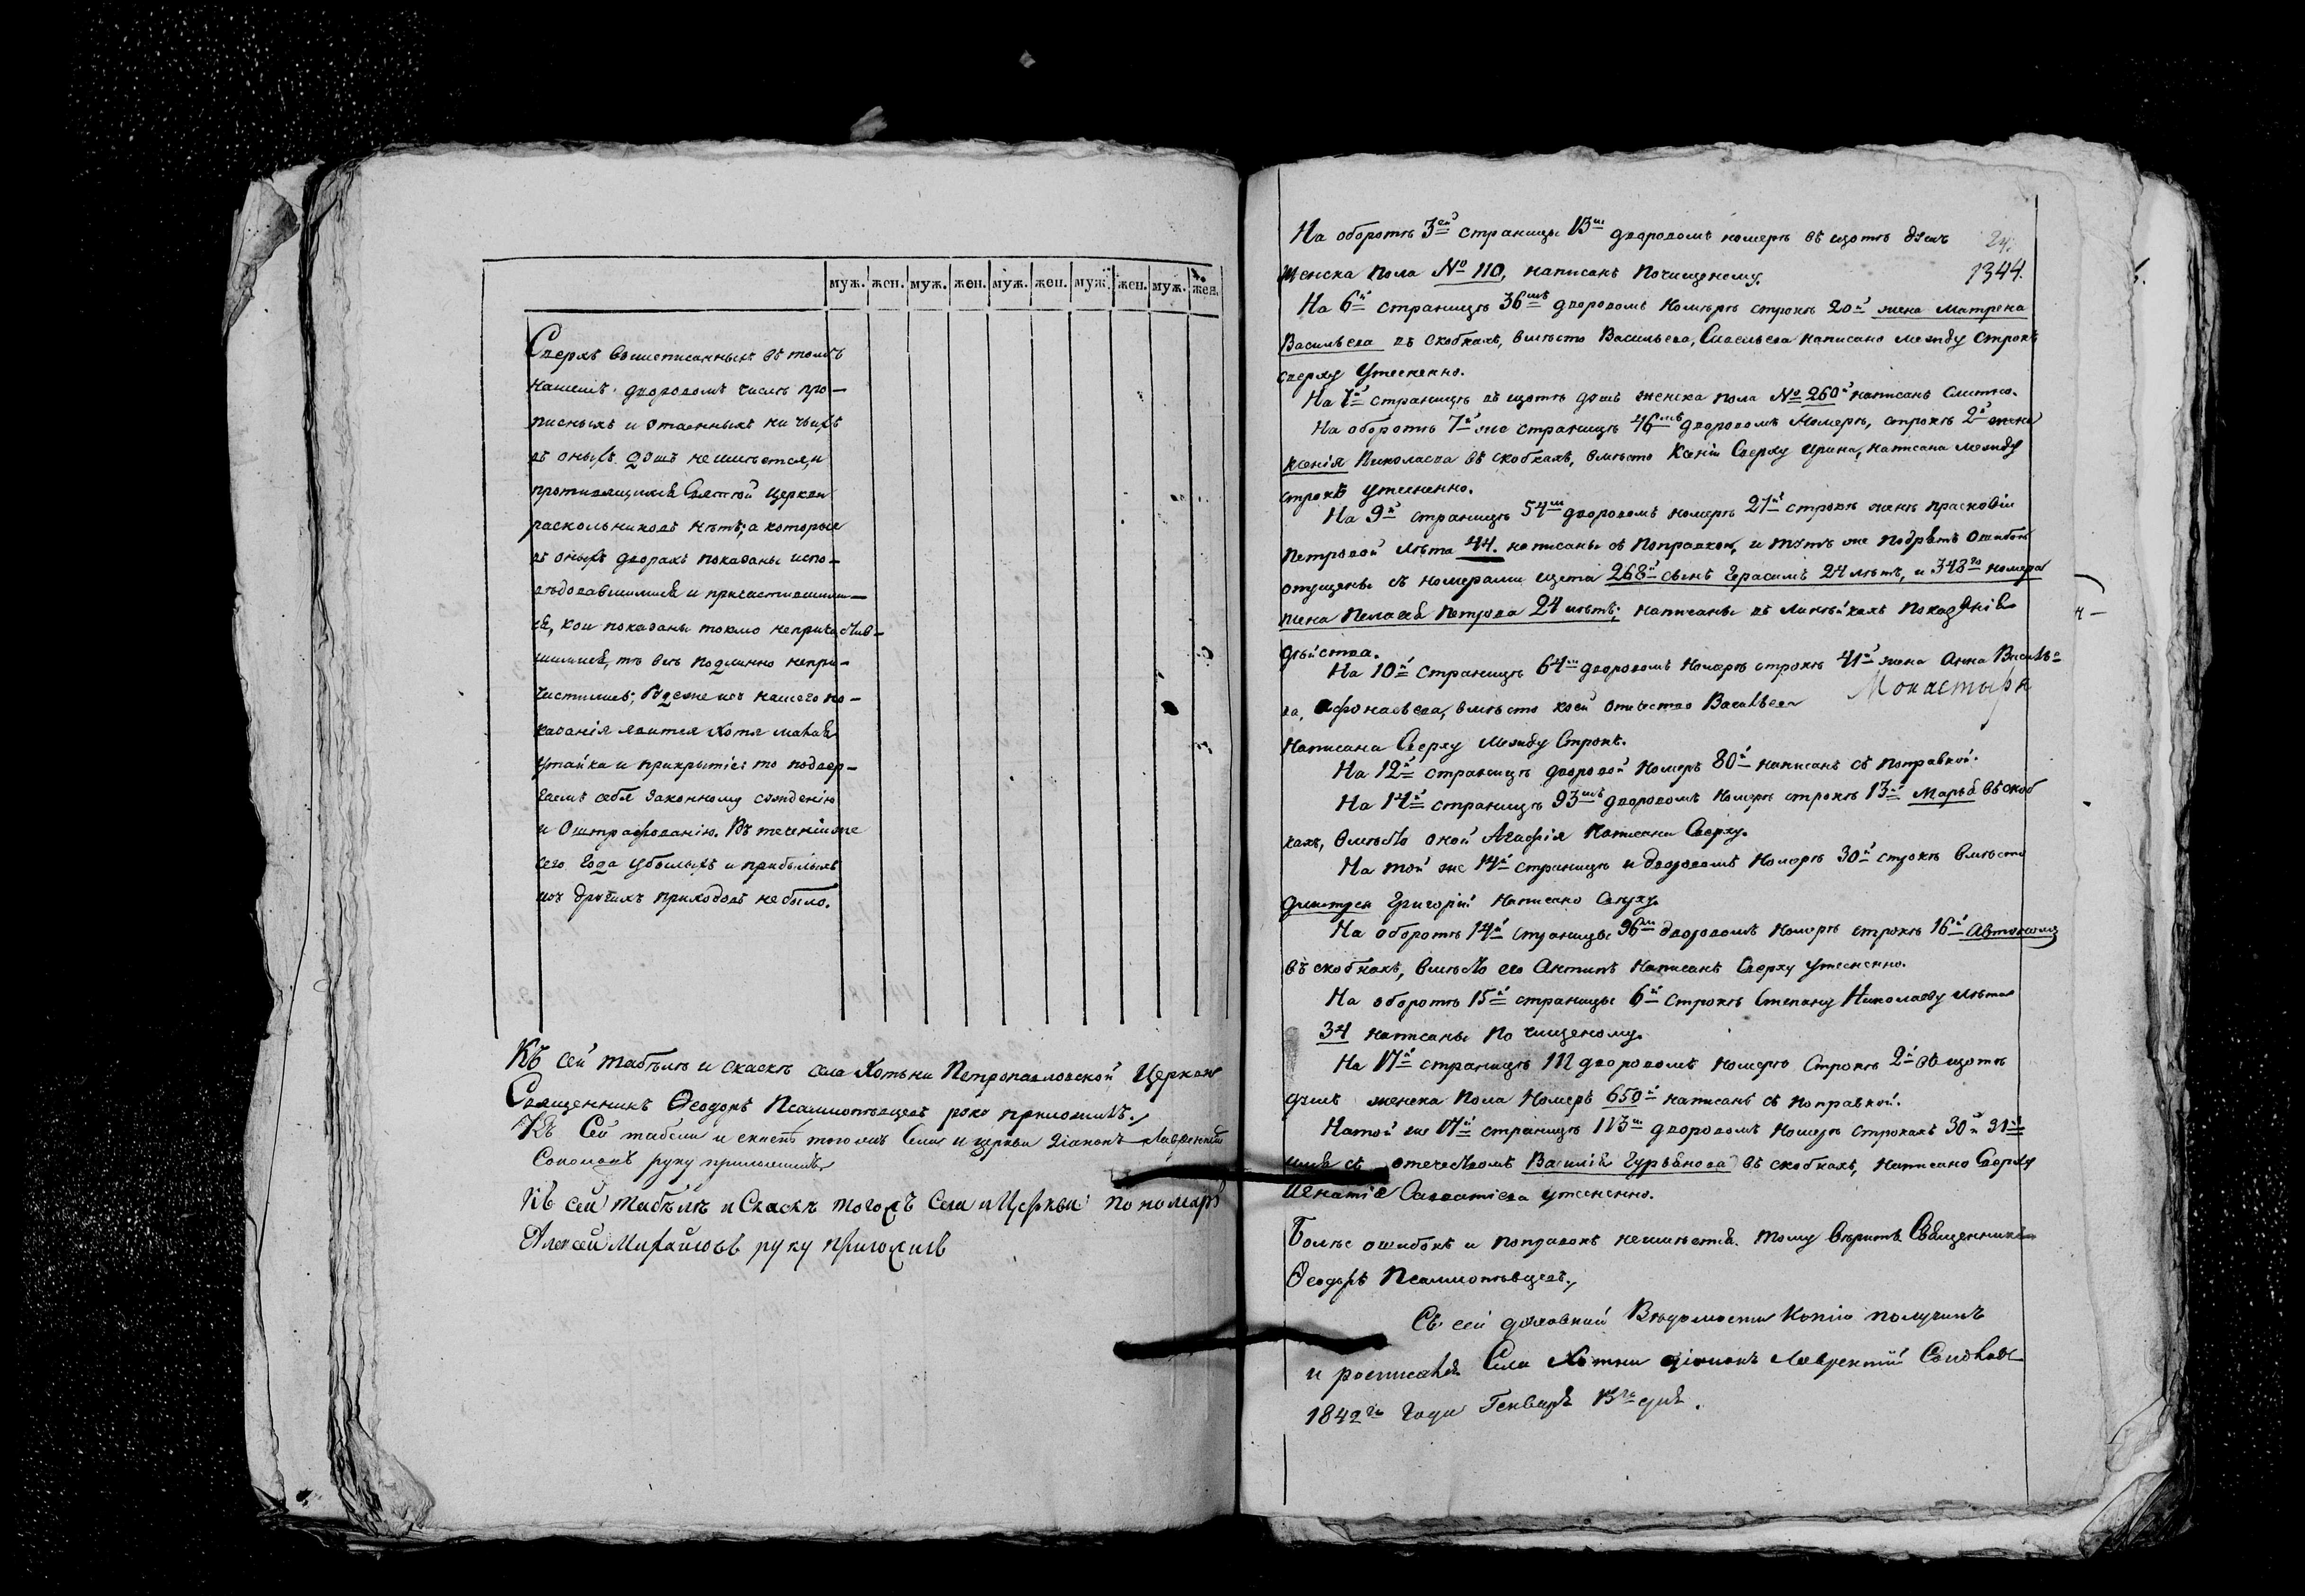 муж. жен. муж. жен. муж. жен. муж. жен. муж. жен.
Сверхъ вышеписанныхъ въ томъ
нашемъ дворовомъ числѣ про-
писныхъ и отаенныхъ ни чьихъ
въ оныхъ душъ неимѣется, и
противящимся Святой церкви
раскольниковъ нѣтъ; а которые
въ оныхъ дворахъ показаны испо-
вѣдовавшимися и причастившими-
ся, кои показаны токмо непричастив-
шимися, тѣ всѣ подлинно непри-
частились; буде же изъ нашего по-
казанія явится хотя малая
утайка и прикрытіе: то подвер-
гаемъ себя законному сужденію
и оштрафованію. Въ теченіи же
сего года убылыхъ и прибылыхъ
изъ другихъ приходовъ не было.
Къ сей табѣлѣ и скаскѣ села Хотьни Петропавловской Церкви
Священникъ Ѳеодоръ Псалмопѣвцевъ руку приложилъ.
Къ Сей табели и скаскѣ того жъ Села и церкви діаконъ Лаврентій
Соколовъ руку приложилъ
Къ сей табѣлѣ и Скаскѣ тогожъ Села и Церкви пономарь
Алексей Михайловъ руку приложилъ
На оборотѣ 3ей страницы 13м дворовомъ номерѣ въ щотѣ душъ 24.
женска пола № 110, написанъ почищеному. 1344.
На 6й страницѣ 36мъ дворовомъ номѣрѣ строкѣ 20й жена Матрена
Васильева въ скобкахъ, вмѣсто Васильева, Савельева написано между строкъ
сверху утесненно.
На 7й страницѣ въ щотѣ душъ женска пола № 260й написанъ слитно.
На оборотѣ 7й же страницѣ 46мъ дворовомъ номерѣ, строкѣ 2й жена
Ксенія Николаева въ скобкахъ, вмѣсто Ксеніи Сверху Ирина, написана между
строкъ утесненно.
На 9й страницѣ 54м дворовомъ номерѣ 27й строкѣ женѣ Прасковіи
Петровой лѣта 44. написаны съ поправкою, и тутъ же подрядъ ошибкою
опущены съ номерами щета 268й сынъ Герасимъ 24 лѣтъ, и 348го номера
жена Пелагея Петрова 24 лѣтъ; написаны въ линѣйкахъ показанія
дѣйства.
На 10й страницѣ 64м дворовомъ номерѣ строкѣ 41й жена Анна Василье-
Монастыри
ва, Афонасьева, вмѣсто коей отчество Васильева
Написана Сверху Между Строкъ.
На 12й страницѣ дворовой номеръ 80й написанъ съ поправкой.
На 14й страницѣ 93мъ дворовомъ номерѣ строкѣ 13й Марья въ скоб
кахъ, вмѣсто оной Агафія Написана Сверху.
На той же 14й страницѣ и дворовомъ номерѣ 30й строкѣ вмѣсто
Дмитрея Григорій Написано Сверху.
На оборотѣ 14й страницы 96м дворовомъ номерѣ строкѣ 16й Автономъ
въ скобкахъ, вмѣсто его Антипъ Написанъ Сверху утесненно.
На оборотѣ 15й страницы 6й строкѣ Степану Николаеву лѣта
34 написаны по чищеному.
На 17й страницѣ 112 дворовомъ номерѣ Строкѣ 2й въ щотѣ
душъ женска Пола Номеръ 650й написанъ съ поправкой.
На той же 17й страницѣ 113м дворовомъ номерѣ строкахъ 30й и 31й
имя съ отечествомъ Василія Гурьянова въ скобкахъ, написано Сверху
Игнатія Савватіева утесненно.
Болѣе ошибокъ и поправокъ неимѣется. Тому вѣритъ Священникъ
Ѳеодоръ Псалмопѣвцевъ.
Съ сей духовной Вѣдомости Копію получилъ
и росписался Села Хотьни діаконъ Лаврентій Соколовъ
1842го Года Генваря 13го дня.